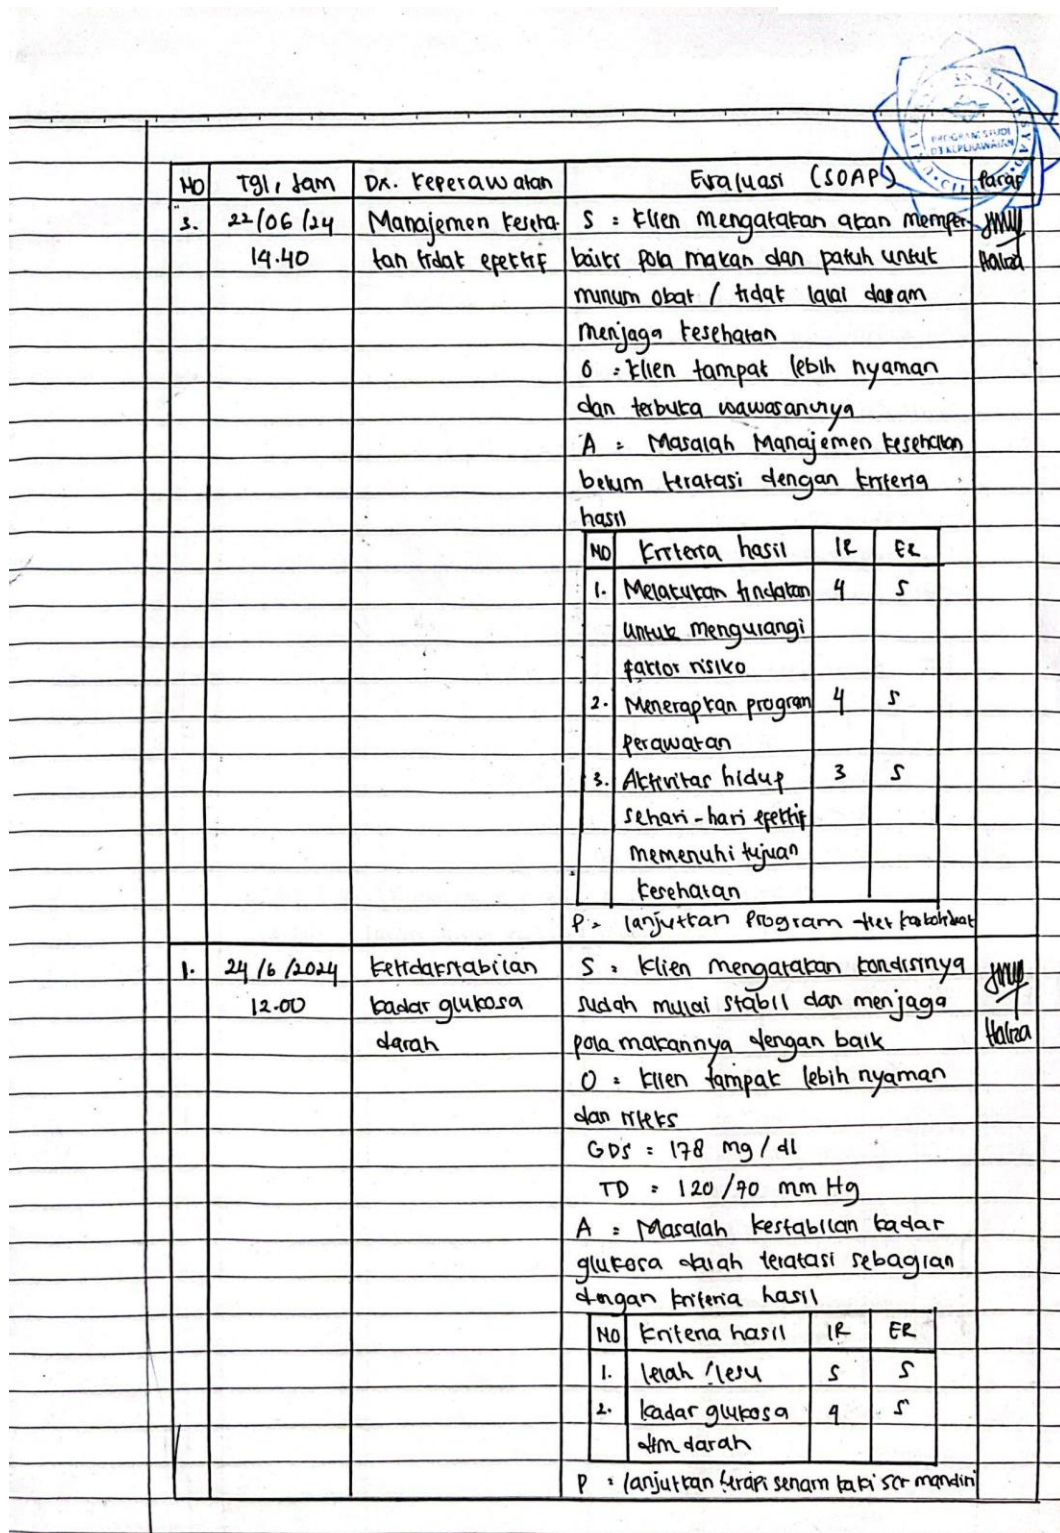 PROGRAM STUDI
D3 KEPERAWATAN
No Tgl, Jam Dx. Keperawatan Evaluasi (SOAP) Paraf
3. 22/06/24 Manajemen keseha- S : Klien mengatakan akan memper-
14.40 tan tidak efektif baiki pola makan dan patuh untuk
minum obat / tidak lalai dalam
menjaga kesehatan
O : Klien tampak lebih nyaman
dan terbuka wawasannya
A : Masalah Manajemen kesehatan
belum teratasi dengan kriteria
hasil
NO Kriteria hasil IR ER
1. Melakukan tindakan 4 5
untuk mengurangi
faktor risiko
2. Menerapkan program 4 5
perawatan
3. Aktivitas hidup 3 5
sehari-hari efektif
memenuhi tujuan
kesehatan
P : lanjutkan program diet karbohidrat
1. 24/6/2024 Ketidakstabilan S : Klien mengatakan kondisinya
12.00 kadar glukosa sudah mulai stabil dan menjaga Haliza
darah pola makannya dengan baik
O : Klien tampak lebih nyaman
dan rileks
GDS : 178 mg/dl
TD : 120/70 mm Hg
A : Masalah kestabilan kadar
glukosa darah teratasi sebagian
dengan kriteria hasil
NO Kriteria hasil IR ER
1. lelah /lesu 5 5
2. kadar glukosa 4 5
dlm darah
P : lanjutkan terapi senam kaki scr mandiri